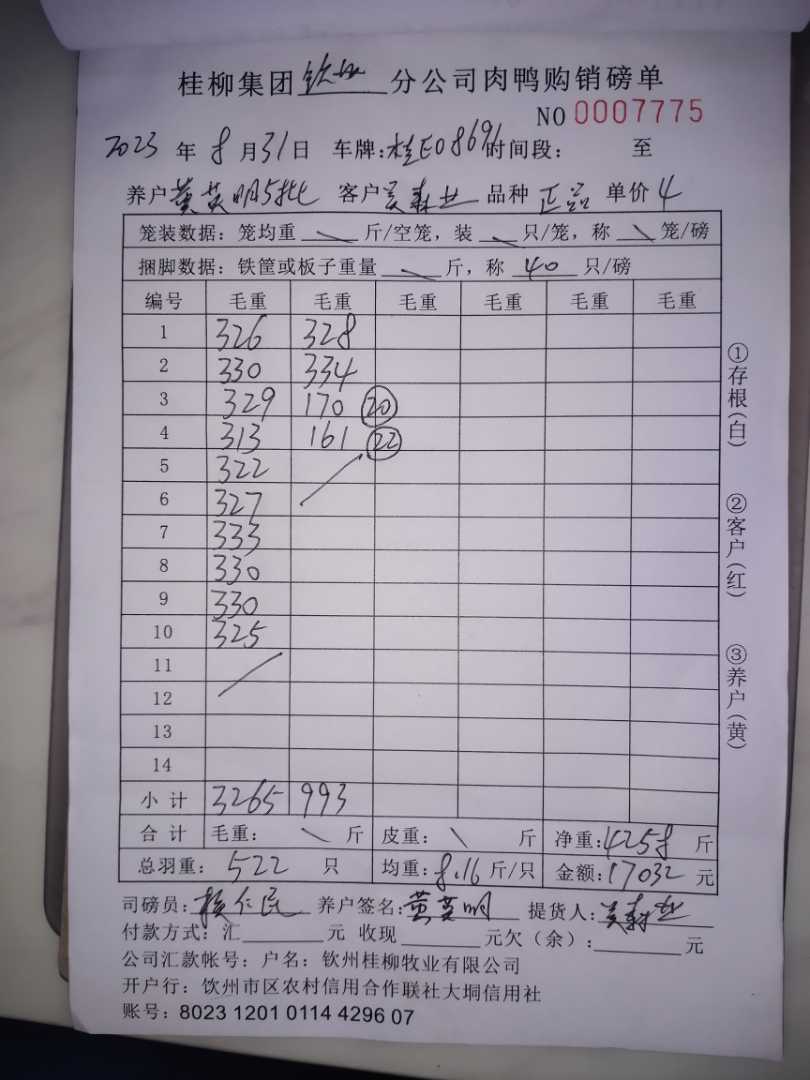 桂柳集团钦州分公司肉鸭购销磅单
NO 0007775
2023 年 8 月 31 日 车牌:桂E08696 时间段: 至
养户 黄英明5批 客户 吴森业 品种 正品 单价 4
笼装数据: 笼均重 斤/空笼, 装 只/笼, 称 笼/磅
捆脚数据: 铁筐或板子重量 斤, 称 40 只/磅
编号 毛重 毛重 毛重 毛重 毛重 毛重
1 326 328
2 330 334
3 329 170 20
4 313 161 22
5 322
6 327
7 333
8 330
9 330
10 325
11
12
13
14
小计 3265 993
合计 毛重: 斤 皮重: 斤 净重: 4258 斤
总羽重: 522 只 均重: 8.16 斤/只 金额: 17032 元
司磅员: 仁民 养户签名: 黄英明 提货人: 吴森业
付款方式: 汇 元 收现 元欠(余): 元
公司汇款帐号: 户名: 钦州桂柳牧业有限公司
开户行: 钦州市区农村信用合作联社大垌信用社
账号: 8023 1201 0114 4296 07
①存根(白)
②客户(红)
③养户(黄)